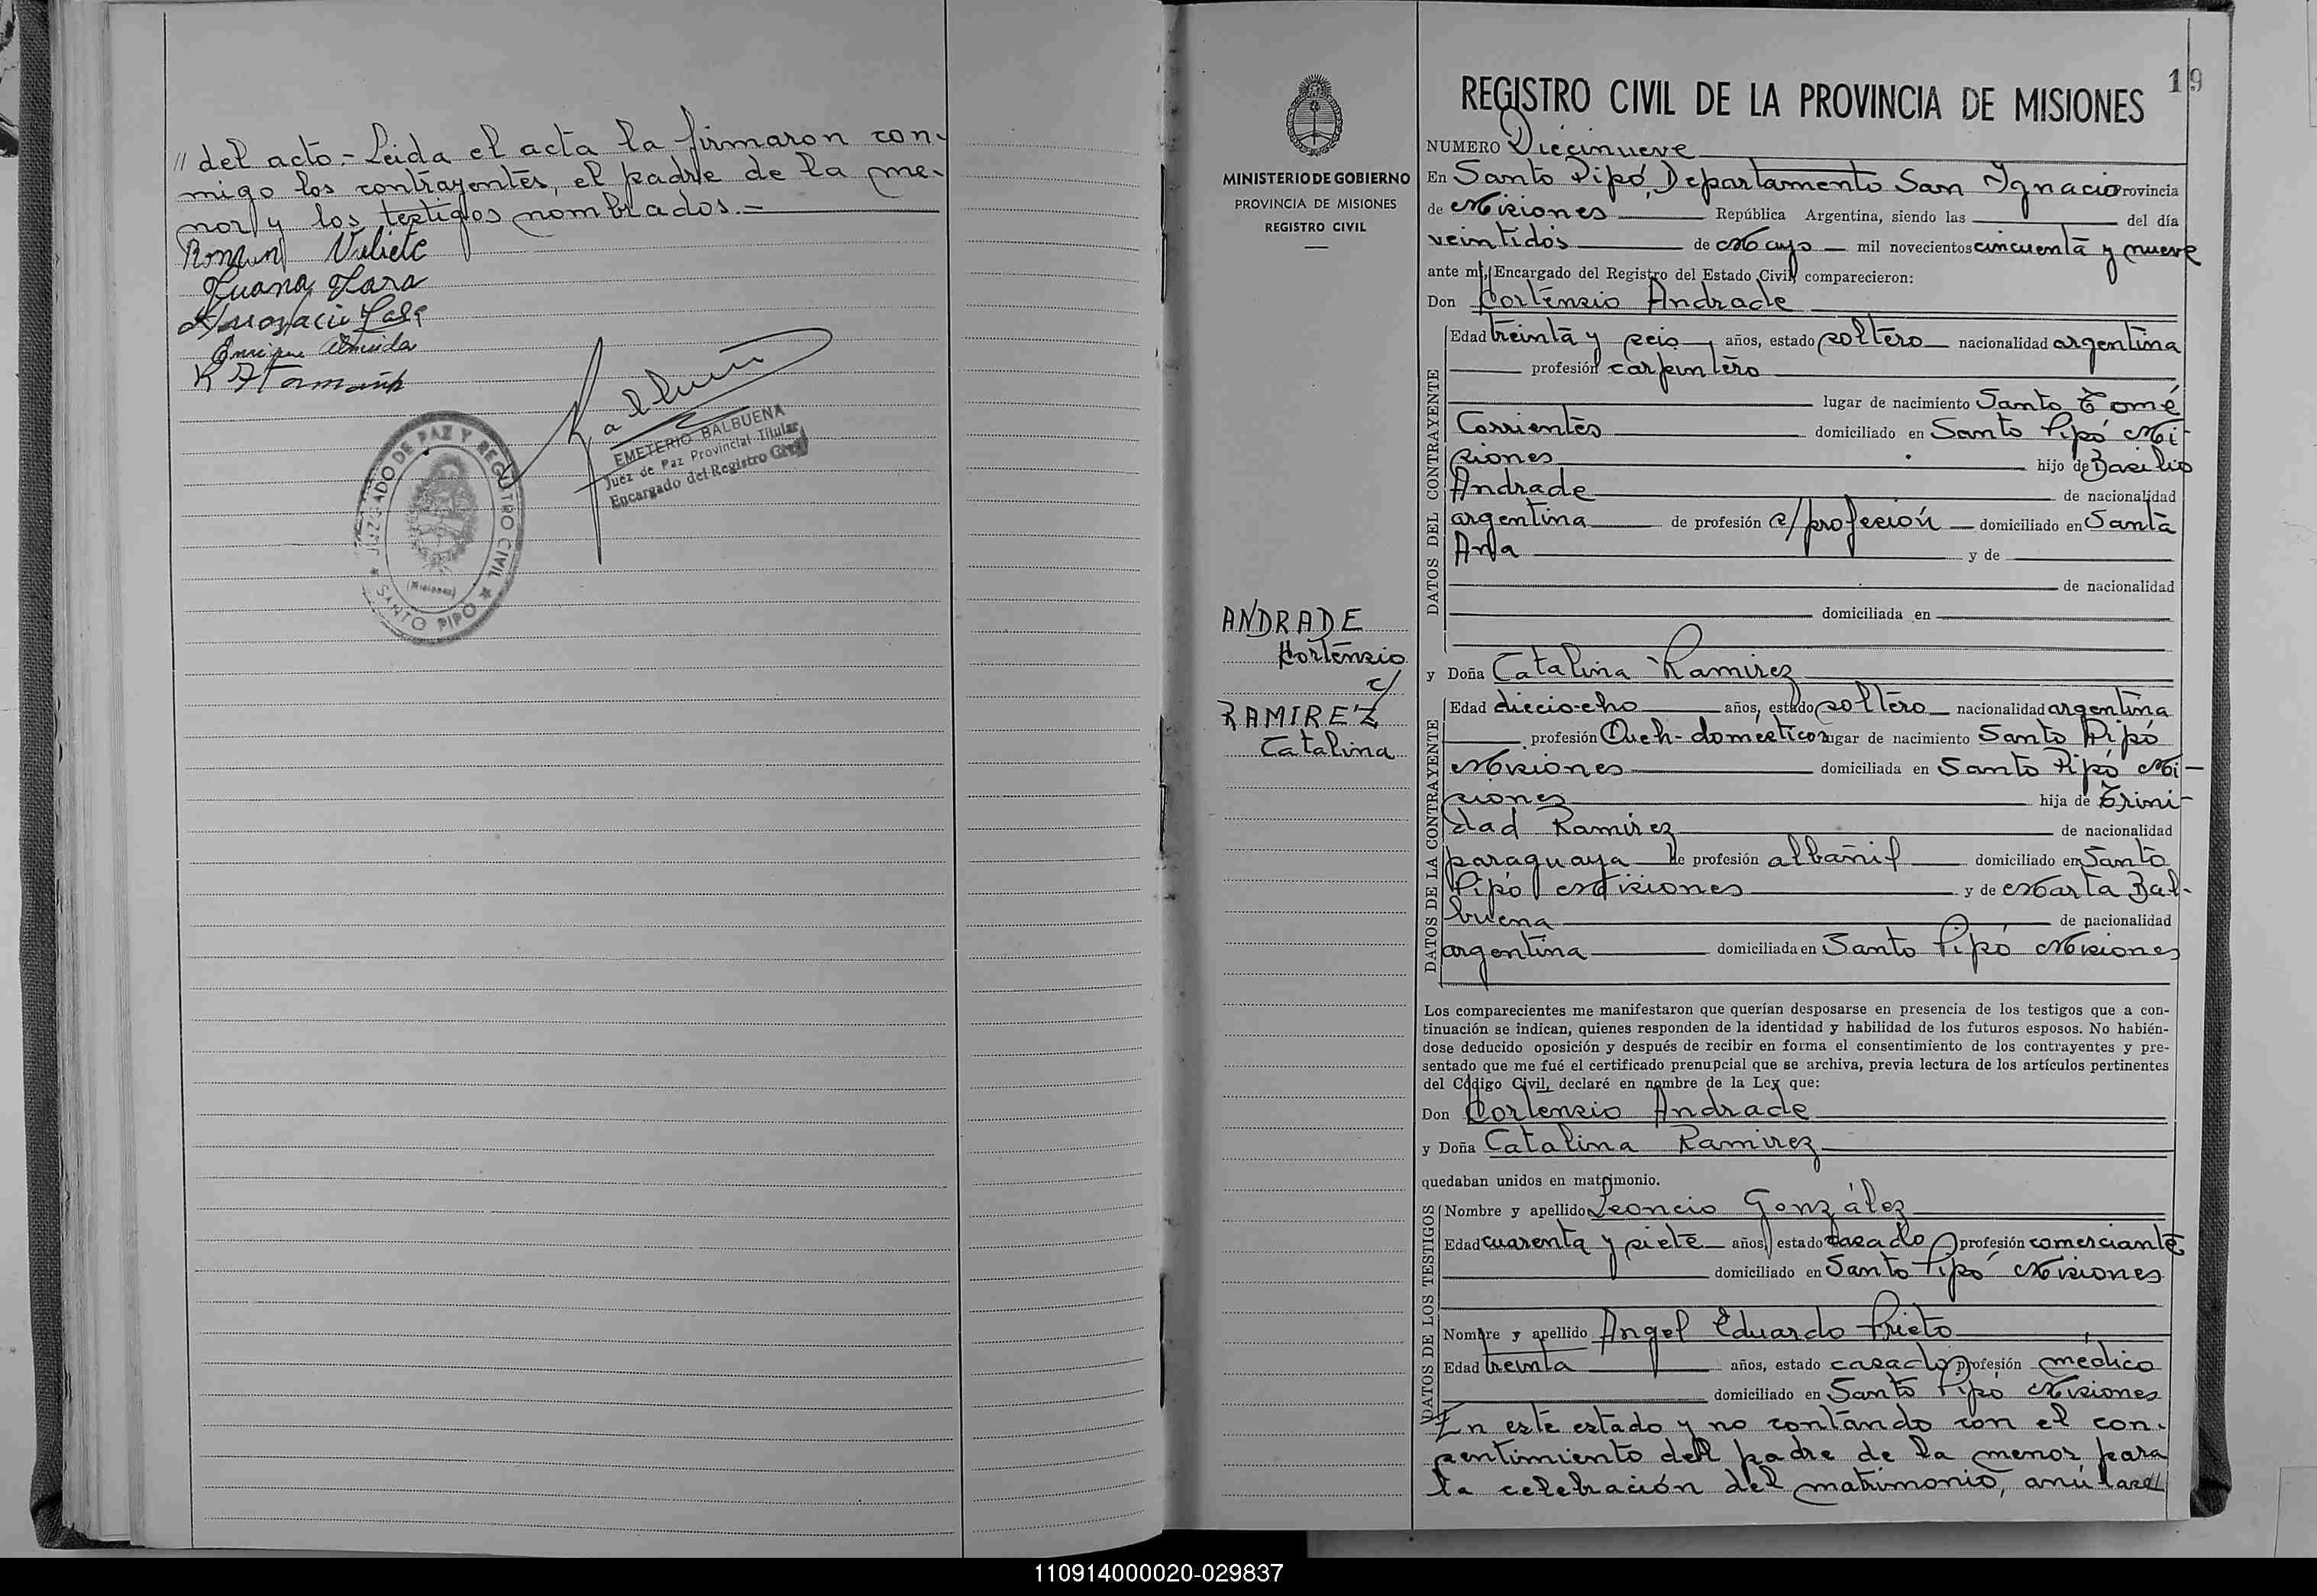 // del acto.- Leida el acta la firmaron con-
migo los contrayentes, el padre de la me-
nor y los testigos nombrados.-
Juana Lara
Enrique Almeida
EMETERIO BALBUENA
Juez de Paz Provincial Titular
Encargado del Registro Civil
JUZGADO DE PAZ Y REGISTRO CIVIL
(Misiones)
★ SANTO PIPO ★
MINISTERIO DE GOBIERNO
PROVINCIA DE MISIONES
REGISTRO CIVIL
ANDRADE
Hortensio
c/
RAMIREZ
Catalina
19
REGISTRO CIVIL DE LA PROVINCIA DE MISIONES
NUMERO Diecinueve
En Santo Pipó, Departamento San Ignacio Provincia
de Misiones República Argentina, siendo las del día
veintidós de Mayo mil novecientos cincuenta y nueve
ante mí, Encargado del Registro del Estado Civil, comparecieron:
Don Hortensio Andrade
DATOS DEL CONTRAYENTE
Edad treinta y seis años, estado soltero nacionalidad argentina
profesión carpintero
lugar de nacimiento Santo Tomé
Corrientes domiciliado en Santo Pipó Mi-
siones hijo de Basilio
Andrade de nacionalidad
argentina de profesión s/profesión domiciliado en Santa
Ana y de
de nacionalidad
domiciliada en
y Doña Catalina Ramirez
DATOS DE LA CONTRAYENTE
Edad dieciocho años, estado soltero nacionalidad argentina
profesión Queh-domésticos lugar de nacimiento Santo Pipó
Misiones domiciliada en Santo Pipó Mi-
siones hija de Trini-
dad Ramirez de nacionalidad
paraguaya de profesión albañil domiciliado en Santo
Pipó Misiones y de Marta Bal-
buena de nacionalidad
argentina domiciliada en Santo Pipó Misiones
Los comparecientes me manifestaron que querían desposarse en presencia de los testigos que a con-
tinuación se indican, quienes responden de la identidad y habilidad de los futuros esposos. No habién-
dose deducido oposición y después de recibir en forma el consentimiento de los contrayentes y pre-
sentado que me fué el certificado prenupcial que se archiva, previa lectura de los artículos pertinentes
del Código Civil, declaré en nombre de la Ley que:
Don Hortensio Andrade
y Doña Catalina Ramirez
quedaban unidos en matrimonio.
DATOS DE LOS TESTIGOS
Nombre y apellido Leoncio González
Edad cuarenta y siete años, estado casado profesión comerciante
domiciliado en Santo Pipó Misiones
Nombre y apellido Angel Eduardo Prieto
Edad treinta años, estado casado profesión médico
domiciliado en Santo Pipó Misiones
En este estado y no contando con el con-
sentimiento del padre de la menor para
la celebración del matrimonio, anúlase//
110914000020-029837